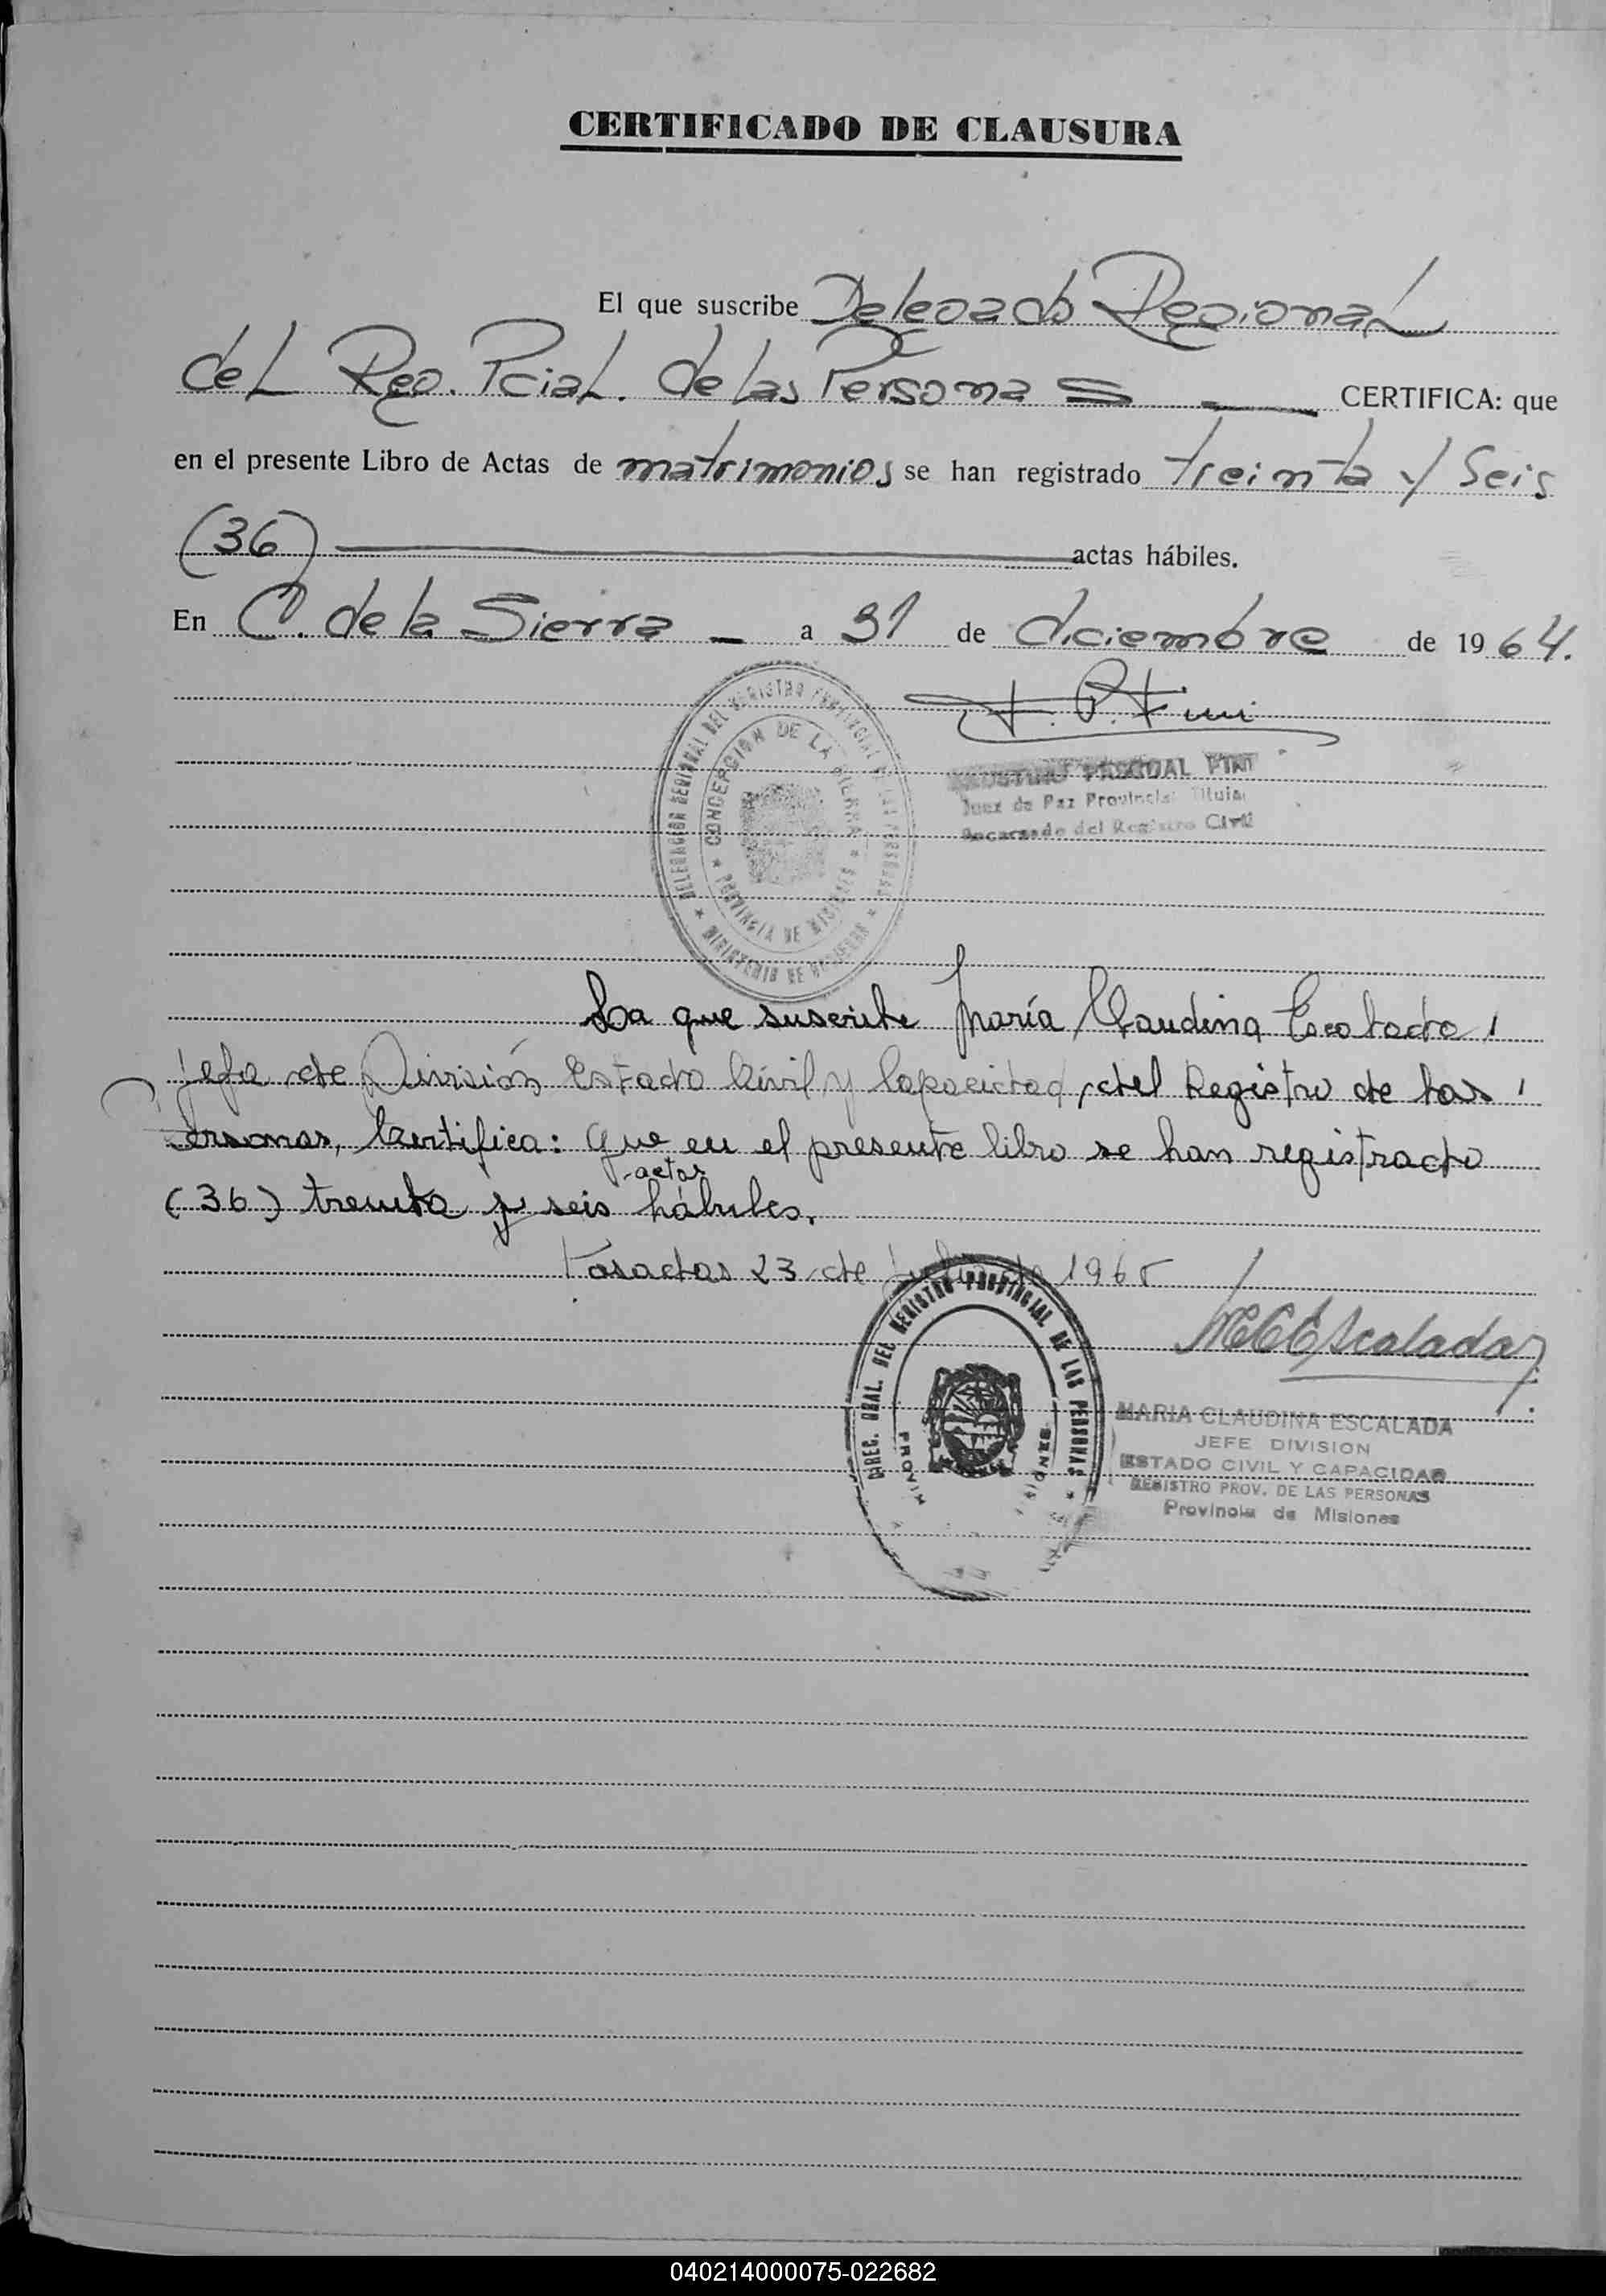 CERTIFICADO DE CLAUSURA
El que suscribe Delegado Regional
del Reg. Pcial. de las Personas — CERTIFICA: que
en el presente Libro de Actas de matrimonios se han registrado treinta y seis
(36) actas hábiles.
En C. de la Sierra - a 31 de diciembre de 1964.
DELEGACION REGIONAL DEL REGISTRO PROVINCIAL DE LAS PERSONAS
* MINISTERIO DE GOBIERNO *
CONCEPCION DE LA SIERRA
* PROVINCIA DE MISIONES *
PASCUAL PINI
Juez de Paz Provincial Titular
Encargado del Registro Civil
La que suscribe María Claudina Escalada,
jefa de División Estado Civil y Capacidad, del Registro de las
Personas, Certifica: que en el presente libro se han registrado
(36) treinta y seis actas hábiles.
Posadas 23 de Julio de 1965
MCEscalada
DIREC. GRAL. DEL REGISTRO PROVINCIAL DE LAS PERSONAS *
MARIA CLAUDINA ESCALADA
JEFE DIVISION
ESTADO CIVIL Y CAPACIDAD
REGISTRO PROV. DE LAS PERSONAS
Provincia de Misiones
040214000075-022682